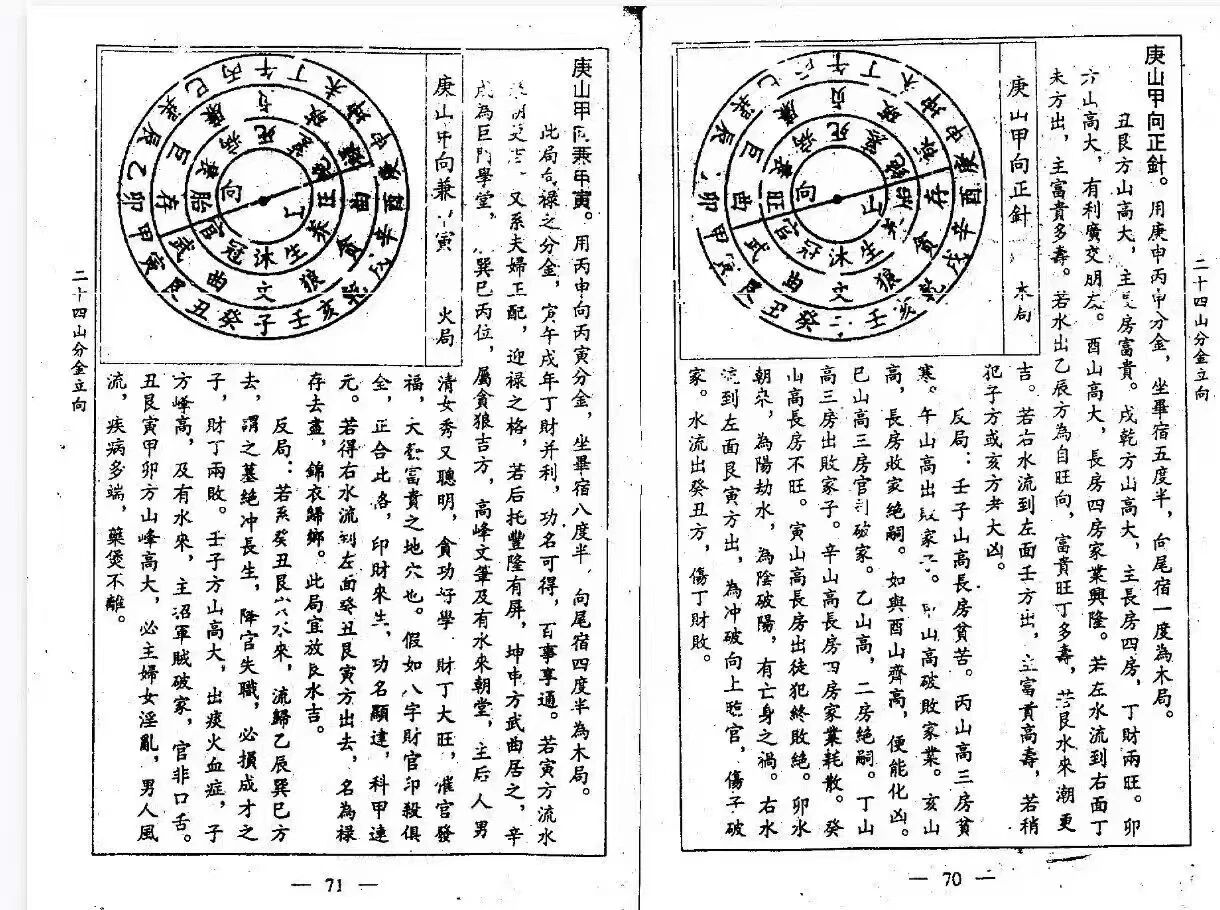 二十四山分金立向
庚山甲向正針。用庚申丙申分金，坐畢宿五度半，向尾宿一度為木局。
丑艮方山高大，主房富貴。戌乾方山高大，主長房四房，丁財兩旺。卯
方山高大，有利廣交朋友。酉山高大，長房四房家業興隆。若左水流到右面丁
未方出，主富貴多壽。若水出乙辰方為自旺向，富貴旺丁多壽，艮水來潮更
庚山甲向正針 木局
吉。若右水流到左面壬方出，主富貴高壽，若稍
犯子方或亥方者大凶。
反局：壬子山高長房貧苦。丙山高三房貧
寒。午山高出敗家子。山高破敗家業。亥山
高，長房收家絶嗣。如與酉山齊高，便能化凶。
巳山高三房官訓破家。乙山高，二房絶嗣。丁山
高三房出敗家子。辛山高長房四房家業耗散。癸
山高長房不旺。寅山高長房出徒犯終敗絶。卯水
朝來，為陽劫水，為陰破陽，有亡身之禍。右水
流到左面艮寅方出，為冲破向上臨官，傷子破
家。水流出癸丑方，傷丁財敗。
向
山
旺 死 墓 絶 胎 生 沐 冠
武 曲 文 狼 貪 存 貞 廉 巨
午 丁 坤 申 庚 酉 辛 戌 乾 亥 壬 癸 丑 艮 寅 甲 卯 辰 巽 巳
— 70 —
庚山甲向兼申寅。用丙申向丙寅分金，坐畢宿八度半，向尾宿四度半為木局。
此局合祿之分金，寅午戌年丁財并利，功名可得，百事亨通。若寅方流水
又系夫婦正配，迎祿之格，若后托豐隆有屏，坤申方武曲居之，辛
戌為巨門學堂，巽巳丙位，屬貪狼吉方，高峰文筆及有水來朝堂，主后人男
庚山甲向兼寅 火局
清女秀又聰明，貪功好學，財丁大旺，催官發
福，大發富貴之地穴也。假如八字財官印殺俱
全，正合此格，印財來生，功名顯達，科甲連
元。若得右水流到左面癸丑艮寅方出去，名為祿
存去盡，錦衣歸鄉。此局宜放艮水吉。
反局：若系癸丑艮水來，流歸乙辰巽巳方
去，謂之墓絶冲長生，降官失職，必損成才之
子，財丁兩敗。壬子方山高大，出痰火血症，子
方峰高，及有水來，主沼軍賊破家，官非口舌。
丑艮寅甲卯方山峰高大，必主婦女淫亂，男人風
流，疾病多端，藥煲不離。
向
胎 病 死 墓 旺 養 生 沐 冠
武 曲 文 狼 貪 曲 貞 廉 巨 存
丙 午 丁 未 坤 申 酉 辛 戌 乾 亥 壬 子 癸 丑 艮 寅 甲 卯 乙 艮 巽 巳
二十四山分金立向
— 71 —